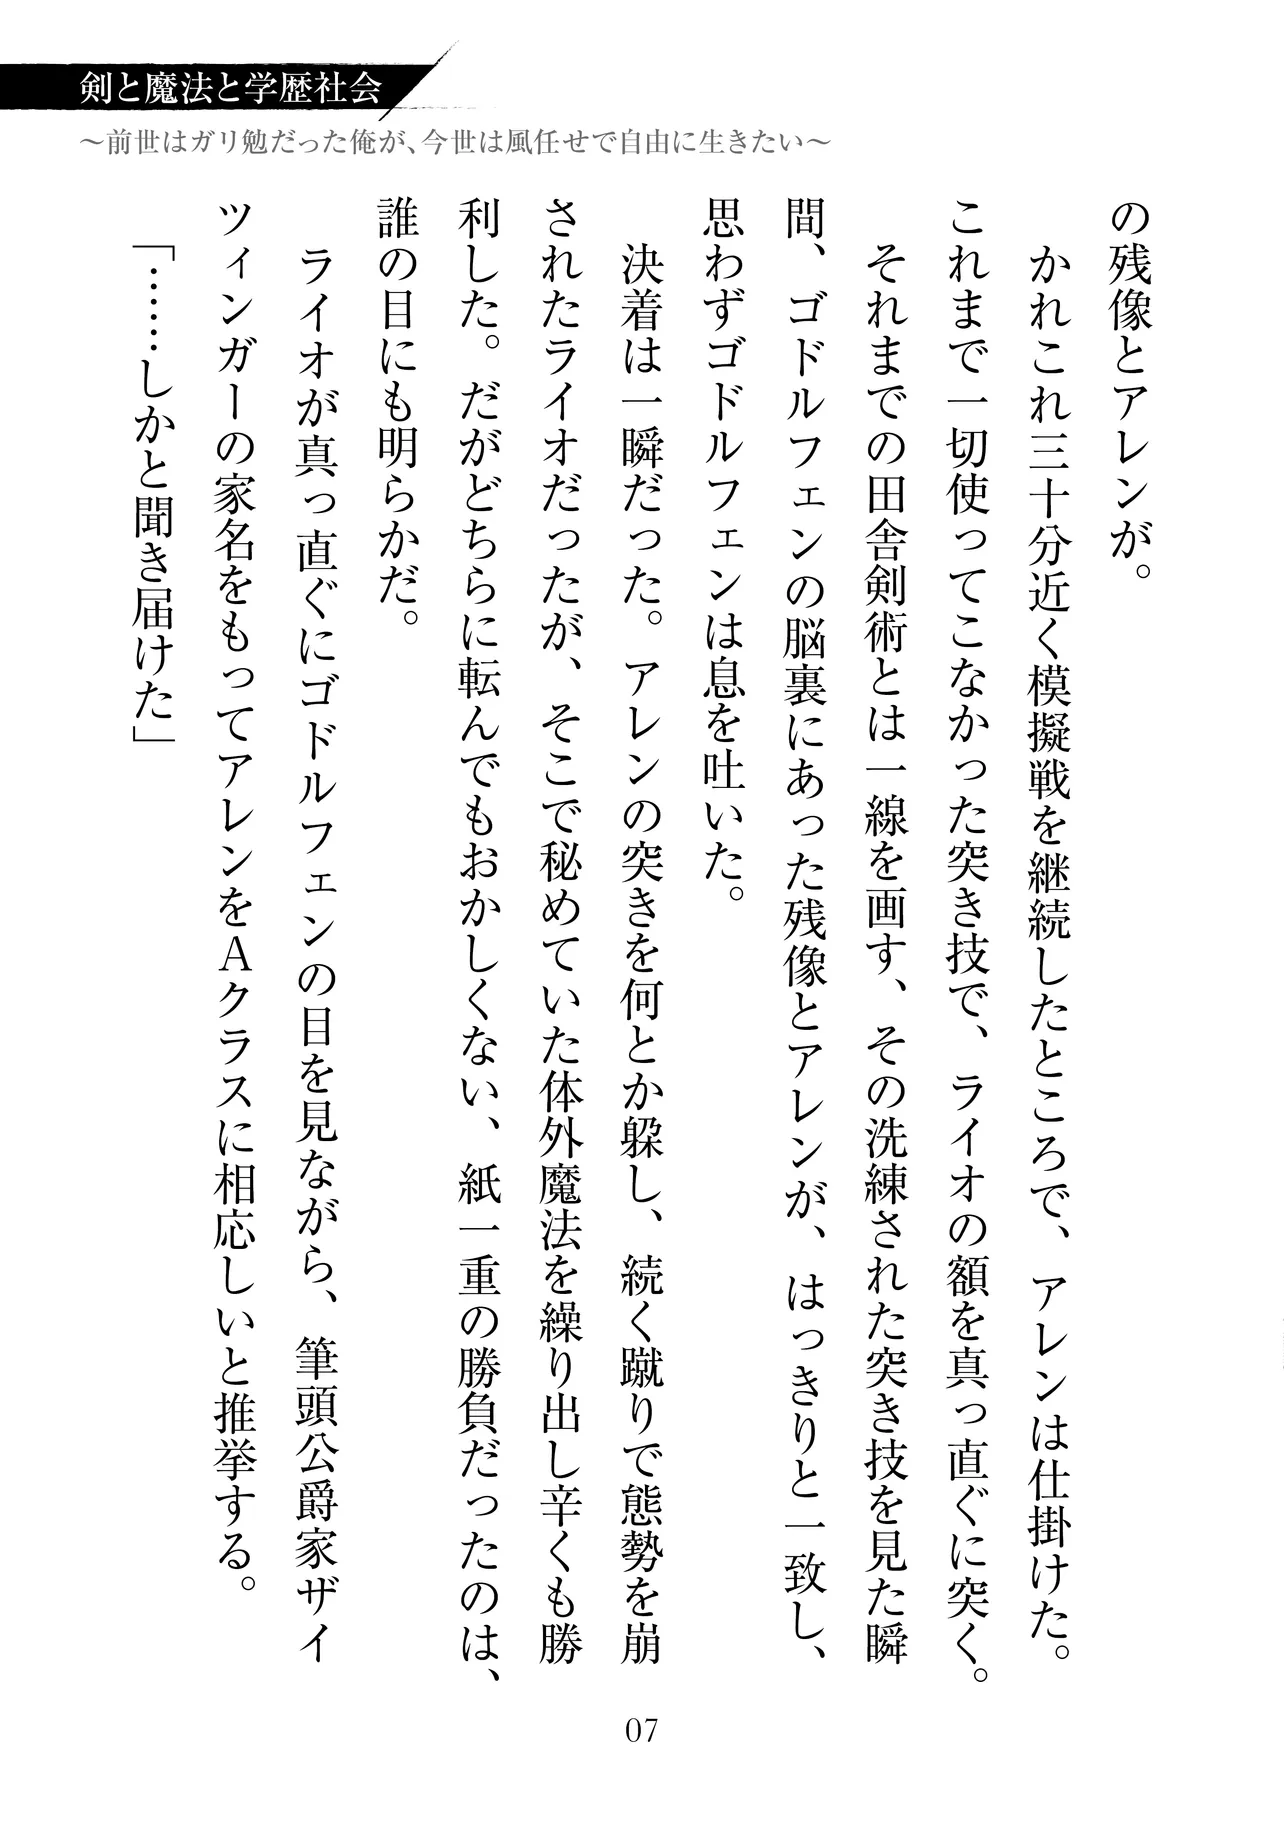 剣と魔法と学歴社会
～前世はガリ勉だった俺が、今世は風任せで自由に生きたい～
の残像とアレンが。
　かれこれ三十分近く模擬戦を継続したところで、アレンは仕掛けた。
これまで一切使ってこなかった突き技で、ライオの額を真っ直ぐに突く。
　それまでの田舎剣術とは一線を画す、その洗練された突き技を見た瞬
間、ゴドルフェンの脳裏にあった残像とアレンが、はっきりと一致し、
思わずゴドルフェンは息を吐いた。
　決着は一瞬だった。アレンの突きを何とか躱し、続く蹴りで態勢を崩
されたライオだったが、そこで秘めていた体外魔法を繰り出し辛くも勝
利した。だがどちらに転んでもおかしくない、紙一重の勝負だったのは、
誰の目にも明らかだ。
　ライオが真っ直ぐにゴドルフェンの目を見ながら、筆頭公爵家ザイ
ツィンガーの家名をもってアレンをＡクラスに相応しいと推挙する。
「……しかと聞き届けた」
07